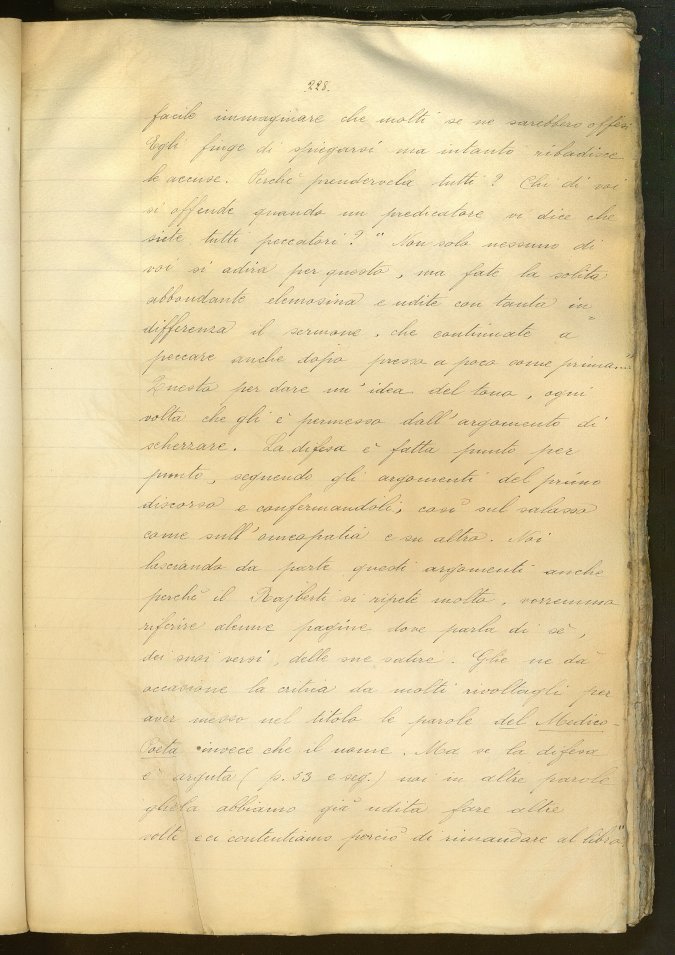 .228.
facile immaginare che molti se ne sarebbero offesi
Egli finge di spiegarsi ma intanto ribadisce
le accuse. Perchè prendervela tutti? Chi di voi
si offende quando un predicatore vi dice che
siete tutti peccatori? " Non solo nessuno di
voi si adira per questo, ma fate la solita
abbondante elemosina e udite con tanta in=
differenza il sermone, che continuate a
peccare anche dopo presso a poco come prima..."
Questo per dare un'idea del tono, ogni
volta che gli è permesso dall'argomento di
scherzare. La difesa è fatta punto per
punto, seguendo gli argomenti del primo
discorso e confermandoli, così sul salasso
come sull'omeopatia e su altro. Noi
lasciando da parte questi argomenti anche
perchè il Rajberti si ripete molto, vorremmo
riferire alcune pagine dove parla di sè,
dei suoi versi, delle sue satire. Glie ne dà
occasione la critica da molti rivoltagli per
aver messo nel titolo le parole del Medico-
Poeta invece che il nome. Ma se la difesa
è arguta (p. 53 e seg.) noi in altre parole
ghela abbiamo già udita fare altre
volte e ci contentiamo perciò di rimandare al libro